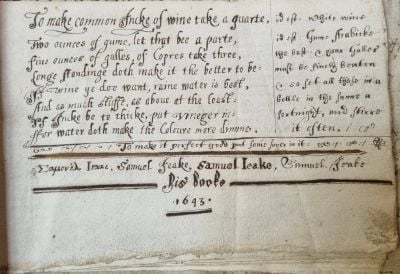 To make common Incke of wine take a quarte,
Two ounces of gume, let that bee a parte,
Five ounces of galles, of Copres take three,
Longe standinge doth make it the better to be:
If wine ye doe want, raine water is best,
And as much stuffe, as above at the least:
If Incke be to thicke, put in
For water doth make the Coloure more dimme.
id est. white wine
id est. Gume Arabicke
the best Galles
must be finely beaten
& so set all these in a
bottle in the sunne a
fortnight, and stirre
it often.
To make it perfect good put some in it:
Samuel Jeake, Samuel Jeake, Samuel Jeake
His Booke
1643.